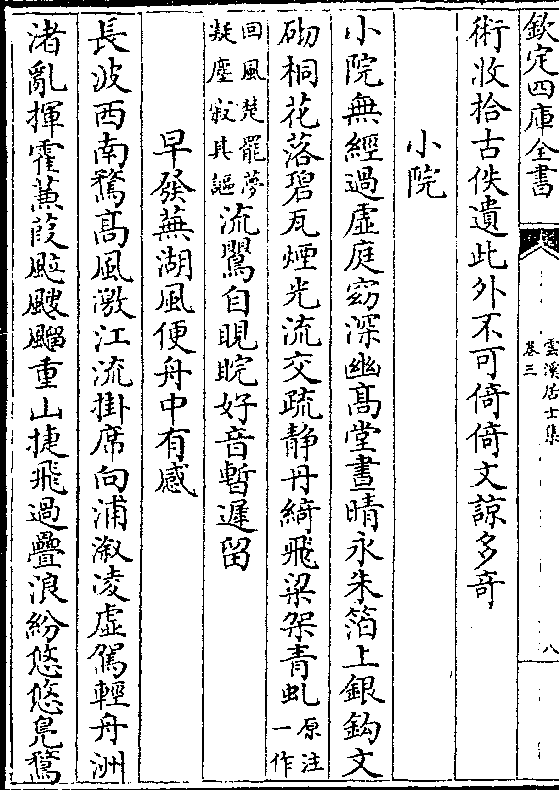 欽定四庫全書
雲溪居士集
卷三
八
術收拾古佚遺此外不可倚倚文諒多竒
小院
小院無經過虛庭窈深幽髙堂晝晴永朱箔上銀鈎文
砌桐花落碧瓦煙光流交疏静丹綺飛梁架青虬原注一作
回風楚罷夢凝塵寂其謳流鸎自睍睆好音暫遲留
早發蕪湖風便舟中有感
長波西南騖髙風激江流掛席向浦溆凌虛駕輕舟洲
渚亂揮霍蒹葭颭颼飀重山捷飛過疊浪紛悠悠鳬鶩